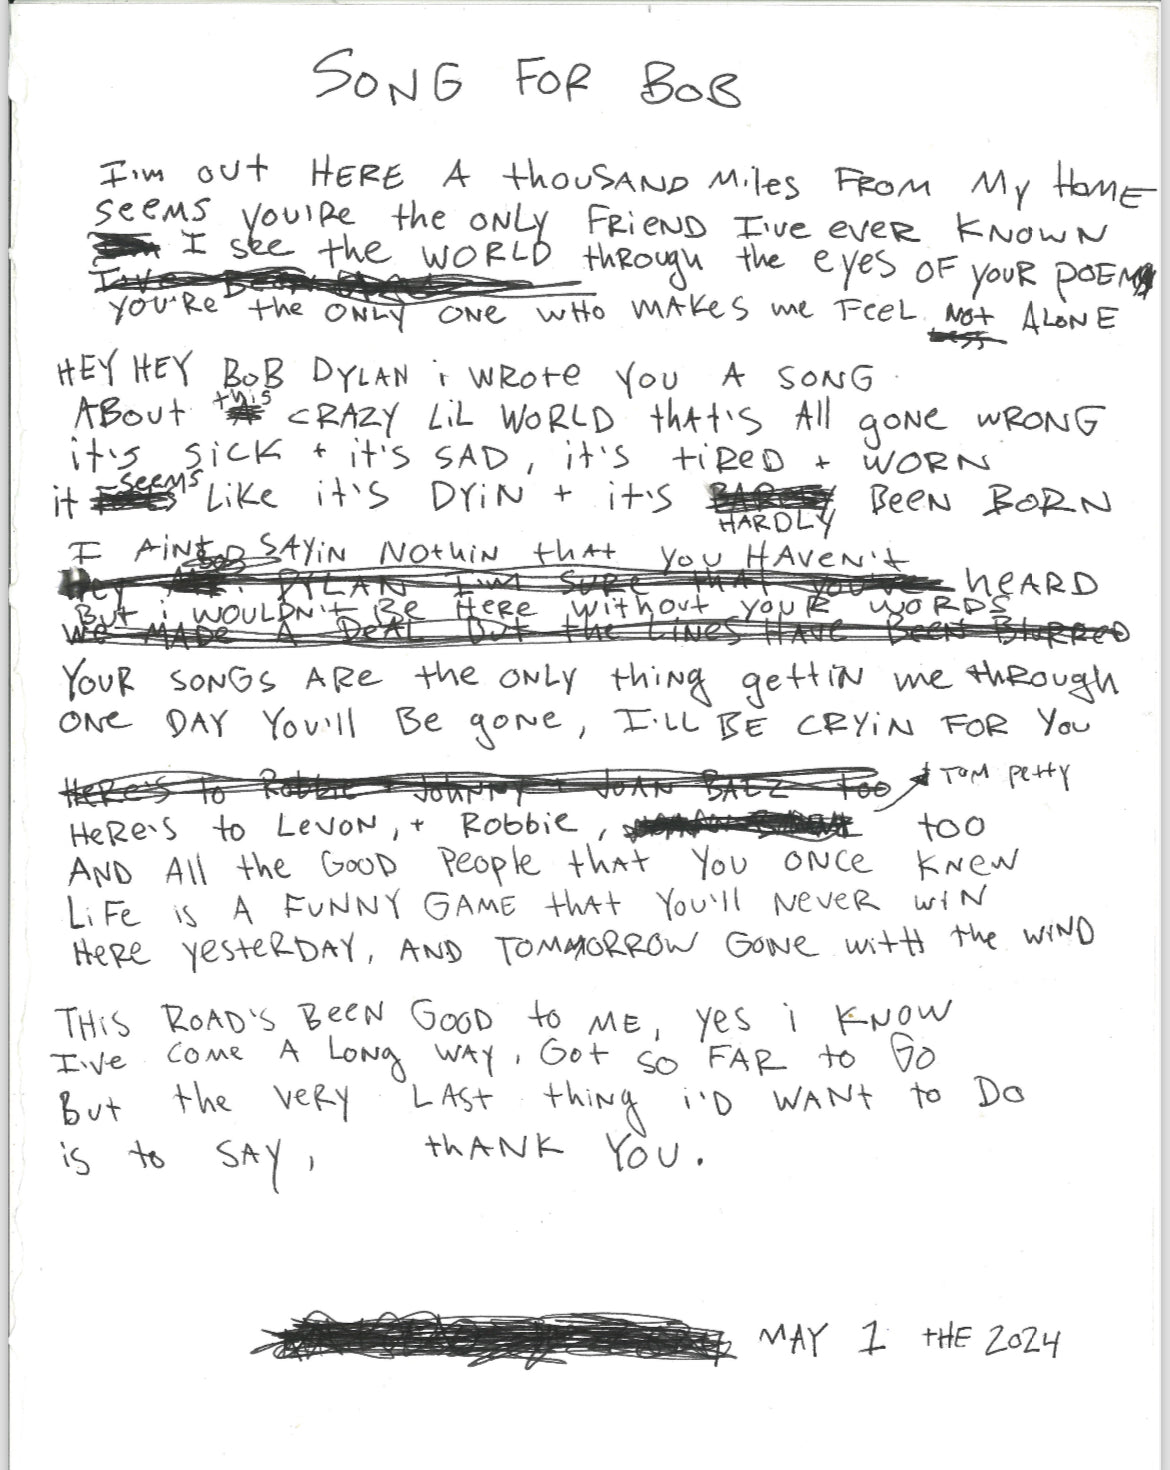 SONG FOR BOB
I'm out HERE A thouSAND Miles FROM My HoME
seems you'Re the ONLY FRIEND I've ever KNOWN
I see the WORLD through the eyes OF your POEM
you're the ONLY ONE WHO MAKES me FeeL NOt ALONE
HEY HEY BOB DYLAN i WRote YOU A SONG
ABout this CRAZY LiL WORLD thAt's All gone WRONG
it's SICK + it's SAD, it's tiReD + WORN
it seems LiKe it's DYiN + it's HARDLY BeeN BORN
I AiNt SAYiN NOthiN that you HAVEN't HEARD
But i WOULDN't Be HeRe without YOUR WORDS
YOUR SONGS ARe the ONLY thing gettiN me thRough
ONe DAY You'll Be gone, I'LL BE CRYiN FOR YOU
HeRe's to LeVON, + Robbie, + TOM Petty too
AND All the GOOD People that You ONCe KNeW
LiFe is A FUNNY GAMe tHAt You'll NeVeR wiN
HeRe YesteRDAY, AND TOMMORROW GONe witH the wiND
THis ROAD's BeeN GOOD to ME, yes i KNOW
I've COMe A LONg WAY, Got SO FAR to GO
But the VeRY LAst thing i'D WANt to DO
is to SAY, thANK YOU.
MAY 1 tHE 2024